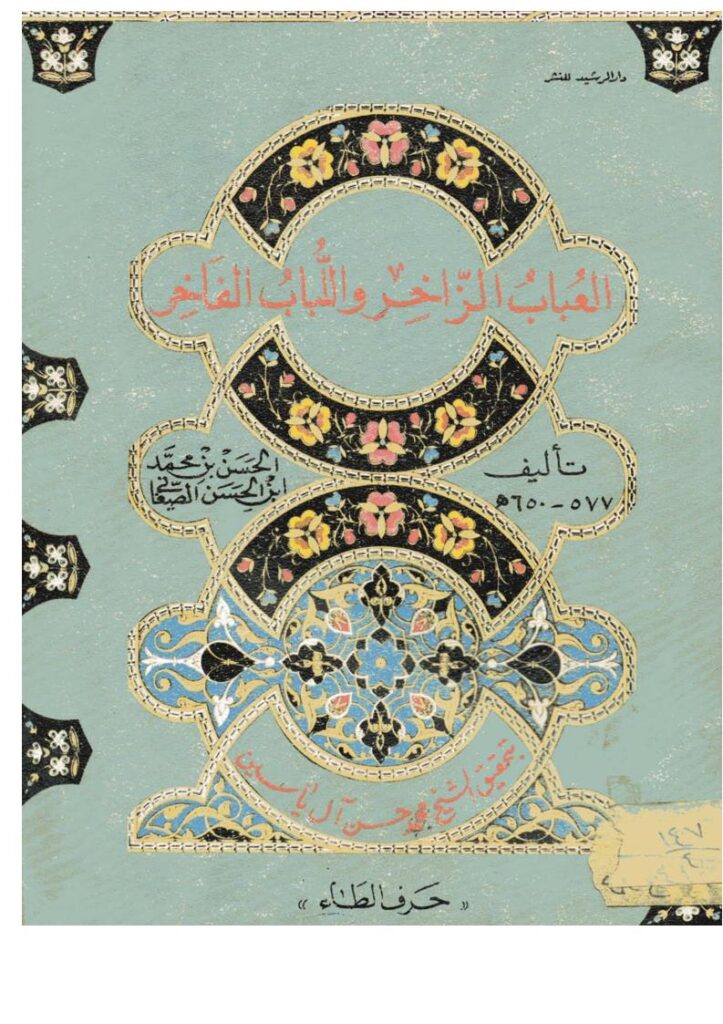 دار الرشيد للنشر
العُبابُ الزّاخِر واللُّبابُ الفَاخِر
تأليف
الحسَنْ بنْ محمَّد
ابن الحِسَن الصَّغاني
٥٧٧ - ٦٥٠ هـ
بتحقيق الشيخ محمد حسن آل ياسين
١٤٧
« حَرف الطَاء »